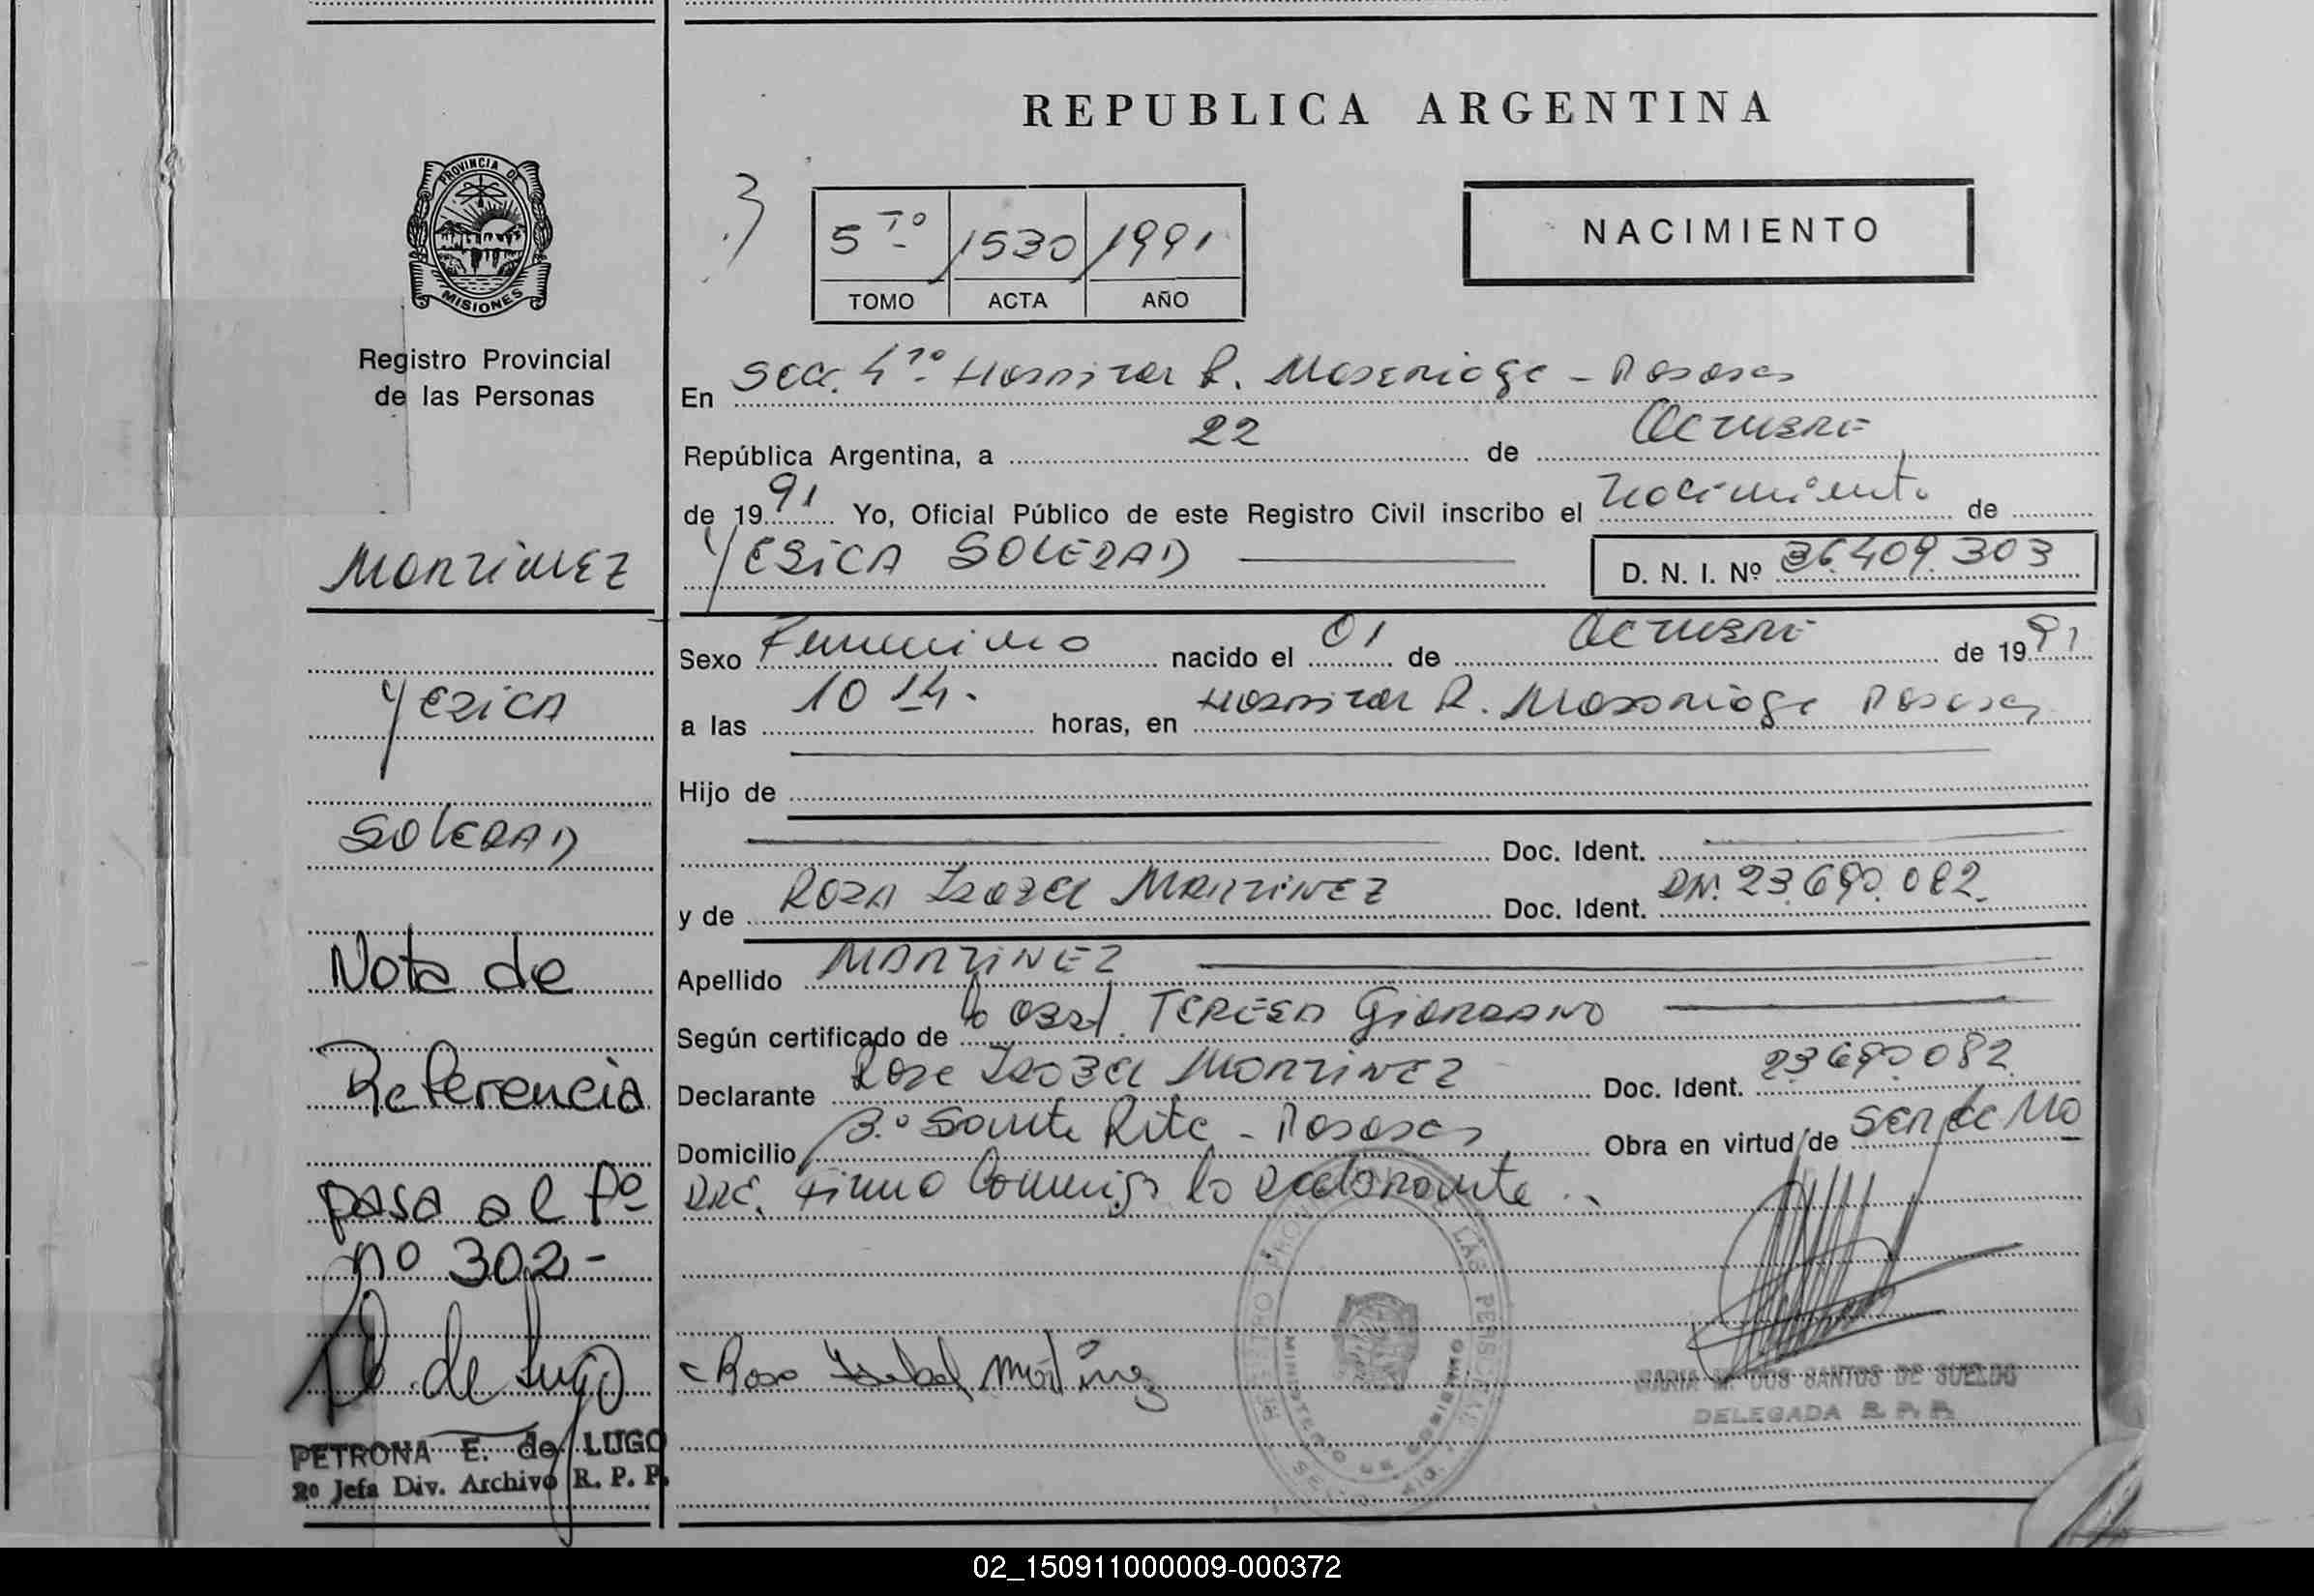 REPUBLICA ARGENTINA
PROVINCIA DE
MISIONES
Registro Provincial
de las Personas
5to 1530 1991
TOMO ACTA AÑO
NACIMIENTO
En Secc. 4to Hospital R. Madariaga - Posadas
República Argentina, a 22 de Octubre
de 1991 Yo, Oficial Público de este Registro Civil inscribo el nacimiento de
YESICA SOLEDAD D. N. I. Nº 36.409.303
Sexo Femenino nacido el 01 de Octubre de 1991
a las 10 14. horas, en Hospital R. Madariaga Posadas
Hijo de
Doc. Ident.
y de ROSA Isabel MARTINEZ Doc. Ident. DNI. 23.690.082.
Apellido MARTINEZ
Según certificado de la Obst. TERESA GIORDANO
Declarante Rosa Isabel MARTINEZ Doc. Ident. 23690082
Domicilio Bº Santa Rita - Posadas Obra en virtud de ser la Ma
dre. Firma conmigo la declarante
Rosa Isabel Martinez
MARIA M. DOS SANTOS DE SUELDO
DELEGADA R. P. P.
MARTINEZ
YESICA
SOLEDAD
Nota de
Referencia
pasa al fº
nº 302-
P. de Lugo
PETRONA E. de LUGO
2º Jefa Div. Archivo R. P. P.
02_150911000009-000372